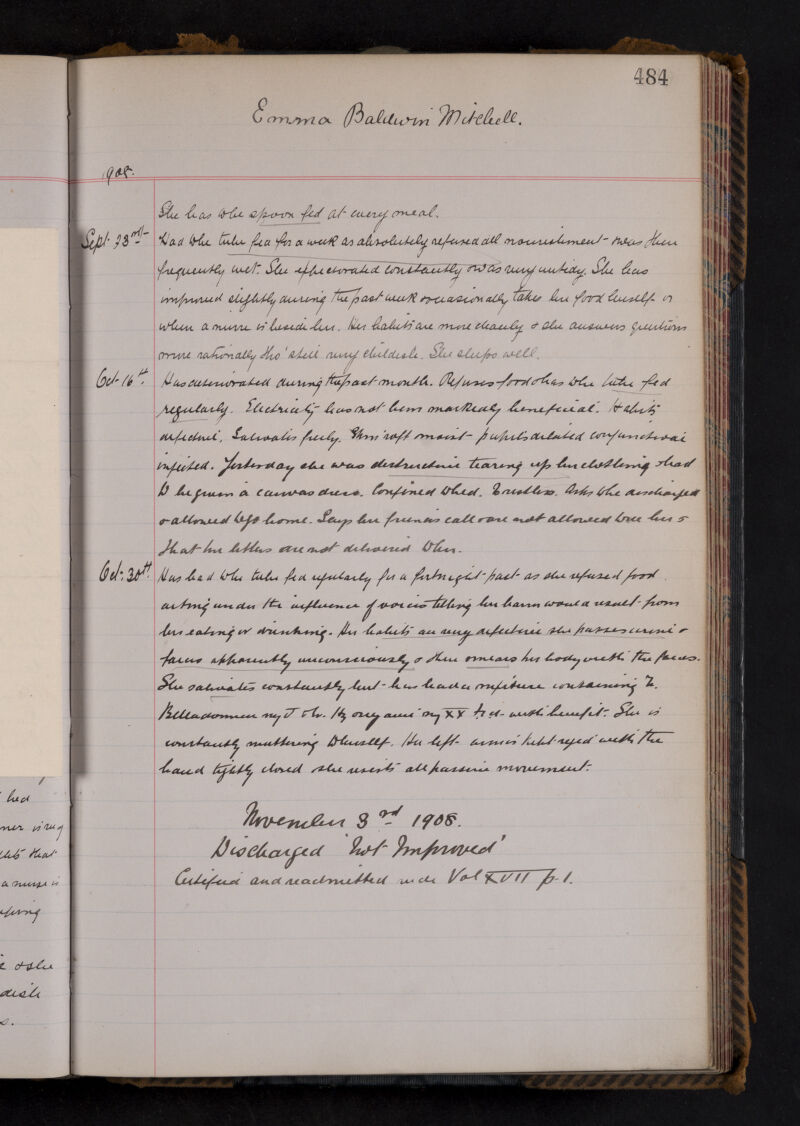 484
Emma Baldwin Mitchell.
1908.
She has to be spoon fed at every meal.
Sept. 23rd Had to be tube fed for a week as absolutely refused all nourishment & was then
frequently wet. She expectorated constantly & was very untidy. She has
improved slightly during the past week & occasionally takes her food herself or
when a nurse is beside her. Her habits are more cleanly & she answers questions
more rationally tho' still very childish. She sleeps well.
Oct 16th. Has deteriorated during the past month. Refuses food & has to be tube fed
regularly. Electricity has not been markedly beneficial. Habits
defective. Salivates freely. Skin soft moist pupils dilated conjunctivae
injected. Yesterday she was destructive tearing up her clothing & had
to be given a canvas dress. Confined to bed. Restless. Asks to be discharged
& allowed to go home. Says her friends call & are not allowed to see her &
that her letters are not delivered to her.
Oct. 30th. Has had to be tube fed regularly for a fortnight past as she refused food
acting under the influence of voices telling her harm would result from
her eating or drinking. Her habits are very defective she passes urine &
faeces apparently unconsciously & then smears her body with the faeces.
She salivates constantly but has had a mixture containing Tr.
Belladonnae
with benefit. She is
constantly muttering to herself. Her left arm is held rigid with the
hand tightly closed & she resists all passive movement.
November 3rd 1908.
Discharged 'Not Improved'
Certified and readmitted vide Vol XVII p. 1.
bed
that
a nurse is
& she